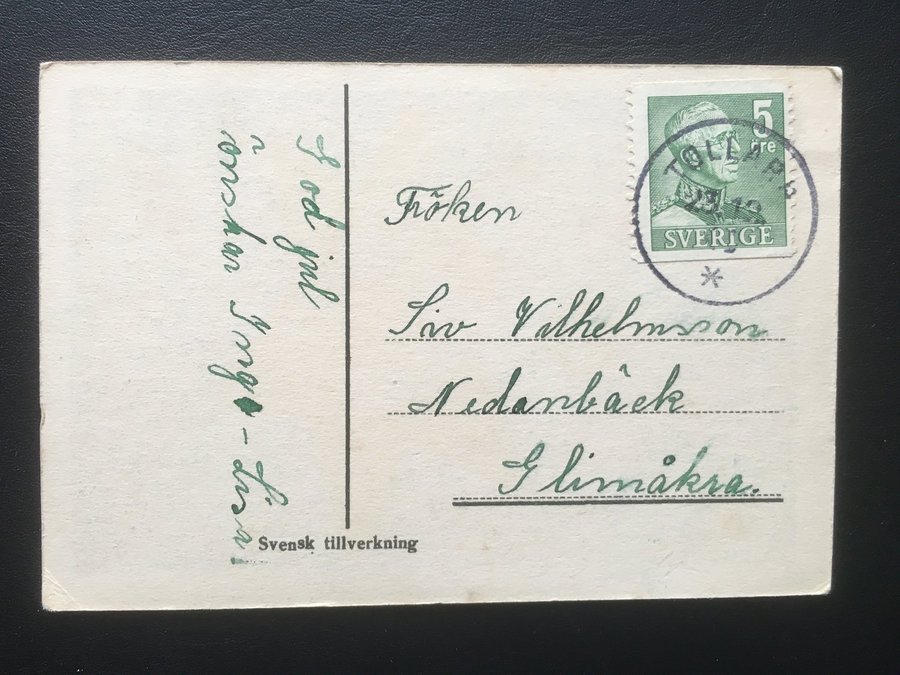 God jul
önskar Inge - Lisa
Fröken
Siv Vilhelmsson
Nedanbäck
Glimåkra.
Svensk tillverkning
5
öre
SVERIGE
TOLLARP
23.12.